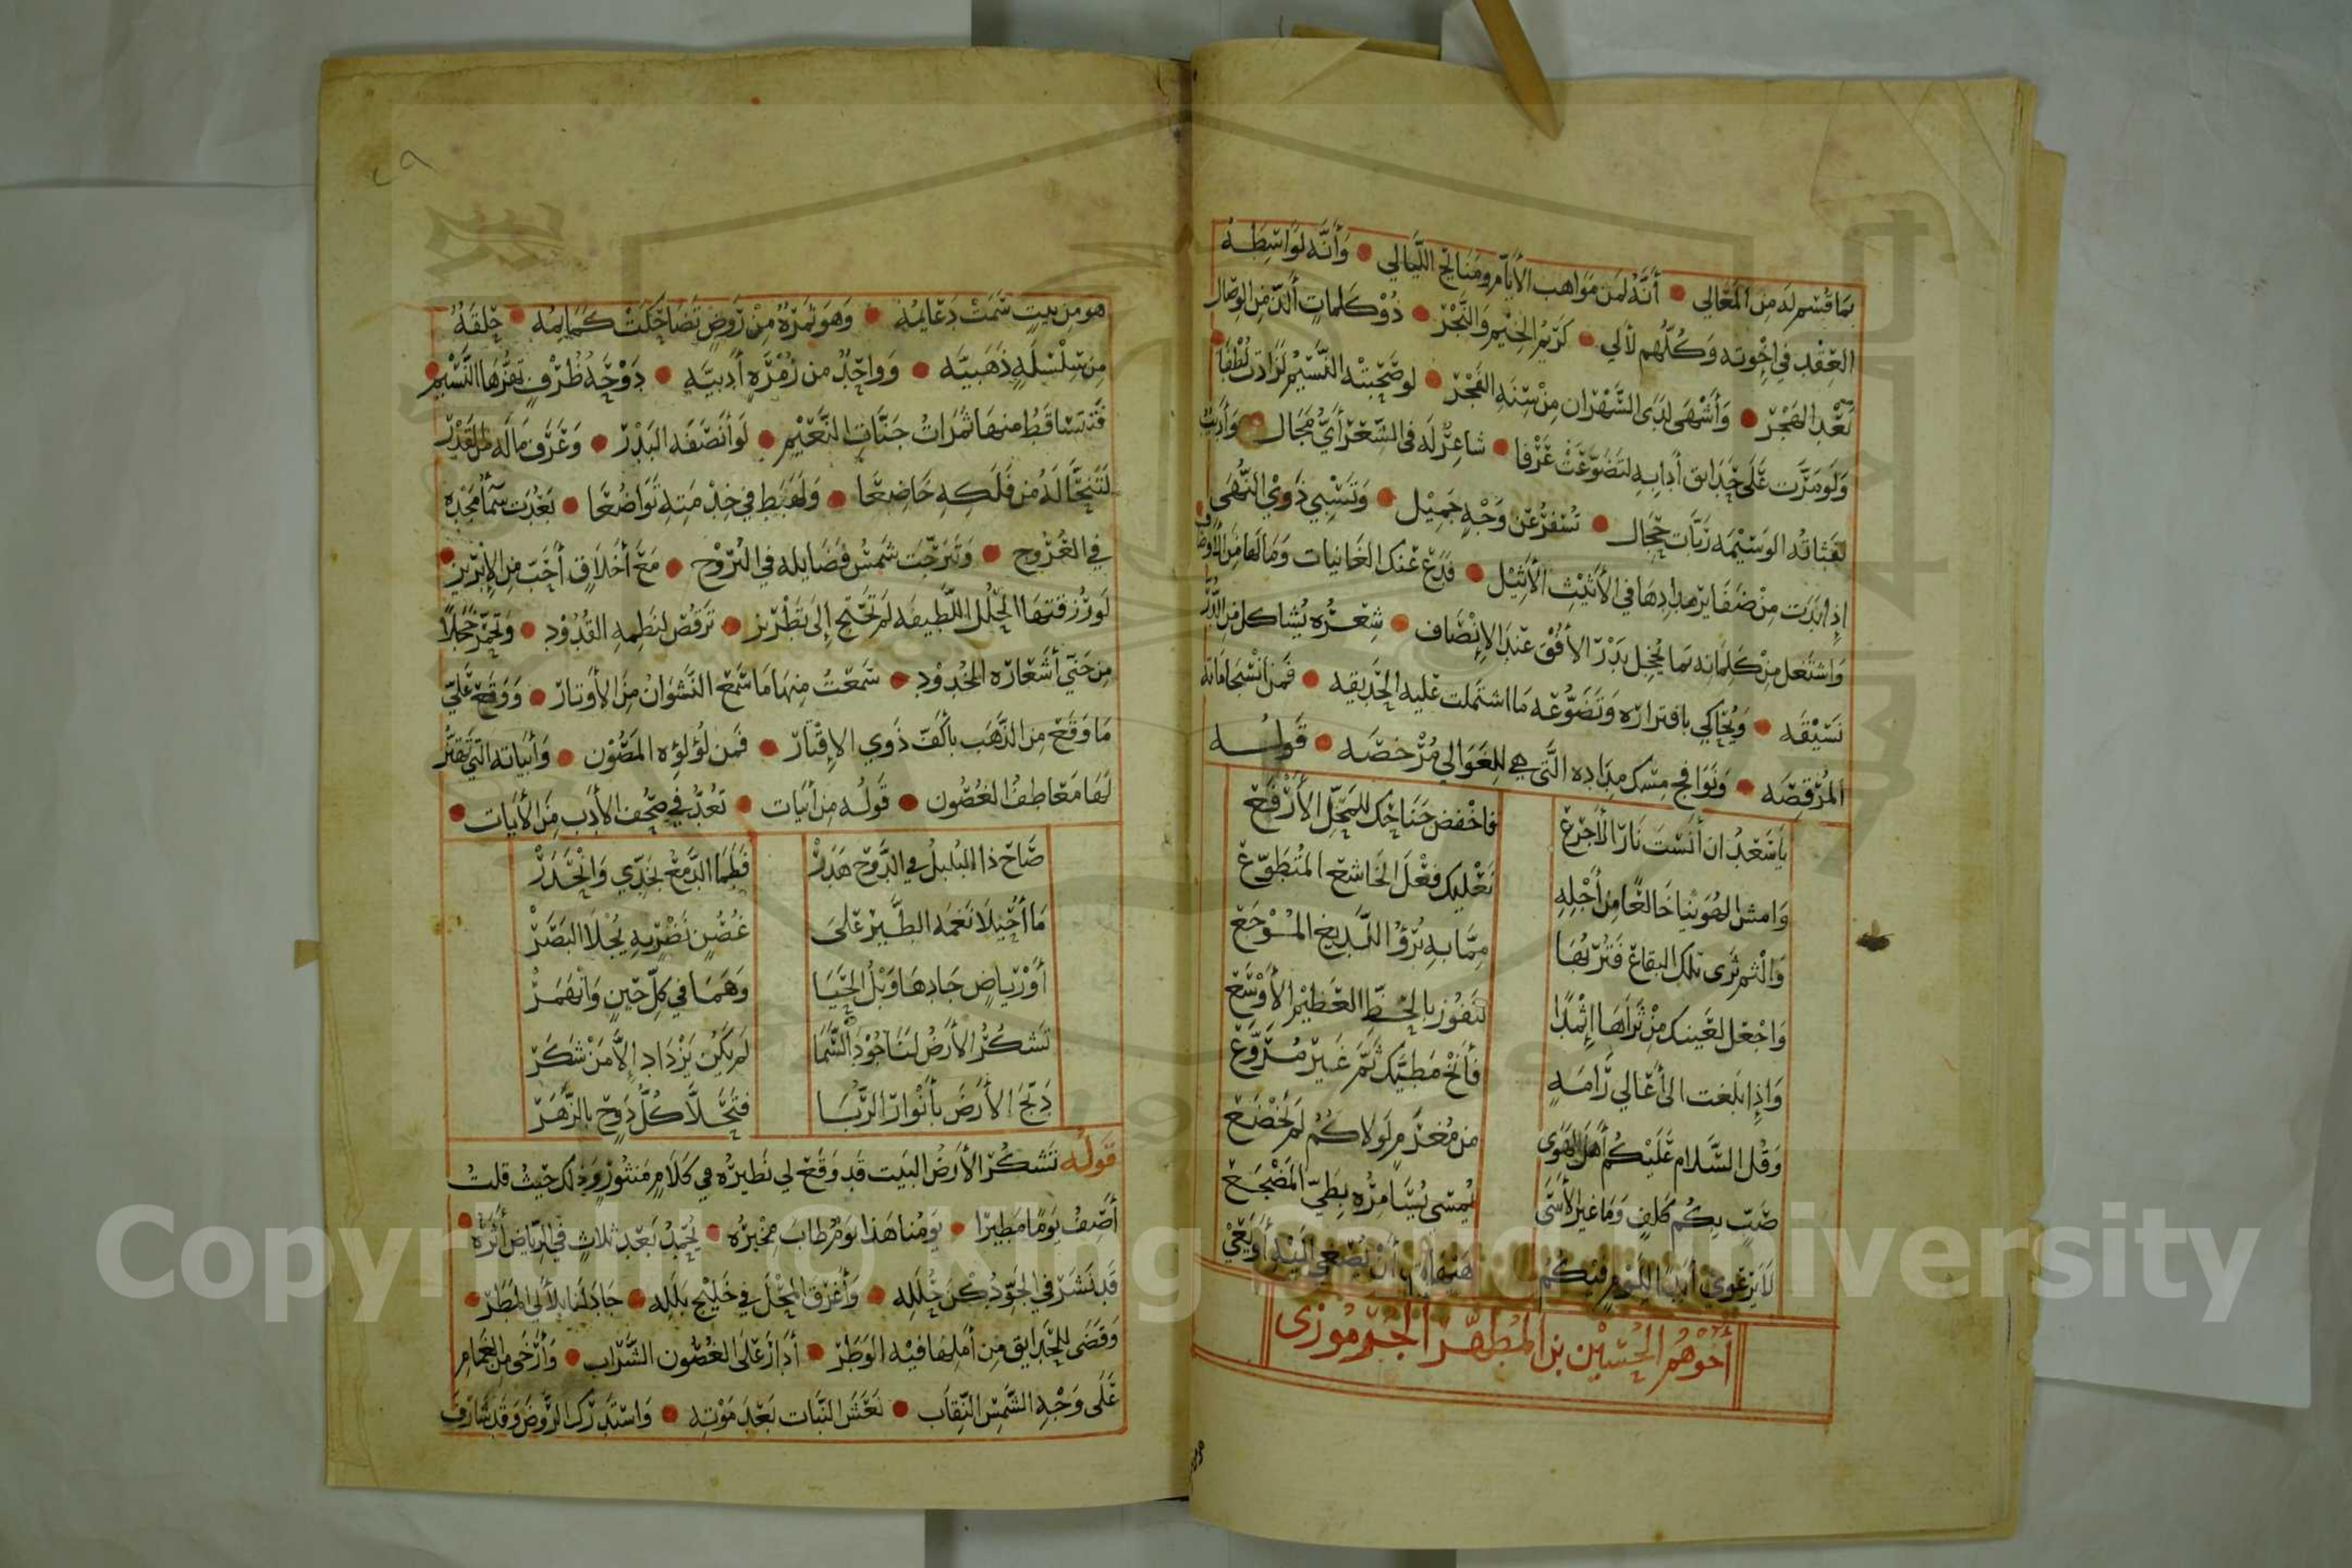 بِمَا قُسِم لَه مِنَ المَعَالِي • أَنَّهُ لَمِن مَوَاهب الأيَّام ومَنَائح اللَّيَالي • وَأَنَّه لَوَاسِطَة
العِقْد فِي اِخْوته وَكُلّهم لآلي • كَرَيْمُ الخِيْم وَالنَّجْر • ذُوْ كَلمَاتٍ أَلَذّ مِن الوِصَال
بَعْدِ الهَجْر • وَأَشْهَى لَدَى السَّهْرَان مِنْ سِنَةِ الفَجْر • لو صَحِبَتْه النَّسِيْم لَزَادَت لُطْفًا
وَلَو مَرَّت عَلَى حَدَائق أدابِهِ لتَضَوَّعَتْ عَرْفا • شاعِرٌ لَه فِى الشّعْر أيُّ مَجَال • وَأَدِيْبٌ
الوَسِيْمَه رَبَّات حِجَال • تُسْفِرُ عَن وَجْهٍ جَمِيْل • وَتَسْبِي ذَوِي النُّهَى
إذا بَدَت مِنْ ضَفَايِر مِدَادِهَا فِي الأَثِيْثِ الأَثِيْل • فَدَعْ عَنْكَ الغَانيات وَمَا لَهَا مِنَ الأوصَاف
وَاشتَغل مِنْ كَلمَاته بَما يُخجِل بَدْرَ الأُفْق عنْدَ الإِنْصَاف • شِعْرُه يُشَاكل مِنَ الدُّرِّ
نَسِيْقَه • وَيُحَاكي بافترَارِه وَتَضَوُّعِه مَا اشتَملت عَليه الحَديقه • فَمِن أنْسِجَامَاتِه
المُرْقِصَه • وَنَوَافِج مِسْك مِدَادِه الَّتي هِي لِلغَوَالي مُرْخصَه • قَولُــه
يَا سَعْدُ ان أَنَسْتَ نَارَ الأَجْرَعِ فَاخْفِض جَنَاحَك للمَحَلِّ الأَرْفَعِ
وَامشِ الهُوَيْنا خَالعًا مِنْ أَجْلِهِ نَعْلَيك فِعْلَ الخَاشعِ المُتَطَوِّعِ
وَالْثم ثَرَى تلك البقاعِ فَتُرْبُهَا مِمَّا بهِ بُرْؤ اللَّدِيغ المُوْجَعِ
وَاجْعَل لعَينيك مِنْ ثَرَاهَا اِثْمِدًا لتَفُوْز بِالحَظِّ العَظِيْم الأَوْسَعِ
وَاِذا بَلغت الى أَعَالي رَامَةٍ فَأَنِخْ مَطِيَّك ثَمَّ غَيْرَ مُرَوَّعِ
وَقُل السَّلام عَلَيْكُم أَهلَ الهَوَى من مُغْرَمٍ لَولاكُمُ لم يَخْضَعِ
صَبٍّ بِكُم كَلِفٍ وَمَا غير الأَسَى يُمسِي يُسَامِرُه بِطَيِّ المَضْجَعِ
لا يَرْعَوِي أبدًا لِلَوْمٍ فيكُمُ هَيهَاتَ أَنْ يُصْغِي اليْهِ أَو يَعِي
أَخُوْهُم الحُسَيْن بن المُطهَّر الجُرْمُوزِى
هو مِن بيتٍ سَمَتْ دَعَايمُه • وَهوَ ثمَرَةٌ مِنْ رَوْضٍ تَضَاحَكَتْ كَمَايمُه • حَلقَةٌ
مِن سِلْسلَةٍ ذَهَبيَّه • وَوَاحِدٌ من زُمْرَةٍ أَدَبيَّه • دَوْحَةُ ظُرْفٍ تَهزُّهَا النَّسِيْم •
فَتَتسَاقَطُ منهَا ثَمَرَاتُ جَنَّاتِ النَّعِيْم • لَو أَنْصَفَه البَدْرُ • وَعَرَف مَا لَه مِن القَدْرِ
لَتَنَحَّا لَهُ من فَلَكِهِ خَاضِعًا • وَلهَبَط فِي خِدْمَتِه تَوَاضُعًا • بَعُدَت سَمَا مَجْدِه
فِي العُرُوج • وَتَبَرَّجَت شَمْسُ فَضَايله في البُرُوْج • مَعَ أَخْلَاقٍ أَحَبّ مِن الإِبْرِيْزِ •
لَو رُزِقَتهَا الحُلل اللَّطيفَه لَم تَحْتج إِلَى تَطْرِيز • تَرقُصُ لِنَظمِهِ القُدُوْد • وَتَحْمَرّ خَجَلاً
مِن جَنيِّ أَشعَارِه الخُدوْد • سَمعْتُ مِنهَا مَا سَمع النَّشوَانُ مِنَ الأَوتَار • وَوَقعَ عَلَيَّ
مَا وَقعَ مِن الذَّهَب بأَكُفِّ ذَوي الإِقْتَار • فَمن لُؤلُؤه المَصُوْن • وَأَبيَاته الَّتي تهتَزّ
لَهَا مَعَاطِفُ الغُصُون • قَولُه مِن أَبيَات • تُعَدُّ فِي صُحُف الأَدَب مِنَ الأيَات •
صَاح ذا البُلبلُ فِي الدَّوْح هَدَرْ فَطَمَا الدَّمْعُ بخَدِّي وَانْحَدَرْ
مَا أُحَيْلَا نَغمَة الطَّيرِ عَلَى غُصُنٍ نَضْرٍ بِهِ يُجْلَا البَصَرْ
أَوْ رِيَاضٍ جَادهَا وَبْلُ الحَيَا وَهَمَا في كلّ حْينٍ وَانْهَمَرْ
تَشكُرُ الأَرضُ لنَا جُوْدَ السَّمَا لم يَكُن يَزْدَاد إِلَّا مَنْ شَكَرْ
دَبَّجَ الأَرضَ بأَنْوَارِ الرُّبَا فَتَحَـلَّا كُلُّ دَوْحٍ بالزَّهَرْ
قَولُه تَشكُرُ الأَرضُ البَيت قَد وَقَع لي نَظيرُه في كَلَامٍ مَنثُوْرٍ وَذلك حَيثُ قلتُ
أَصِفُ يَومًا مَطيِرًا • يَومُنا هَذا يَومٌ طابَ مخْبَرُه • يُحْمَدُ بَعْد ثلاثٍ في الرِّيَاض أَثَرُه •
قَد نَشَرَ في الجَوّ دُكْنَ حُلَلِه • وَأَغرَق المَحْلَ في خَلِيْج بَلَلِه • جَادَ لنَا بلآلي المَطَرْ •
وَقَضَى للحَدَايق مِن أَملِهَا فيْه الوَطَرْ • أدَارَ عَلَى الغُصُون الشَّرَاب • وَأَرْخَى مِنَ الغَمَامِ
عَلَى وَجْهِ الشَّمْس النِّقَاب • نَعَشَ النَّبَات بَعْدَ مَوْتِه • وَاسْتَدْرَك الرَّوضَ وَقَد شَارَفَ
Copyright © King Saud University